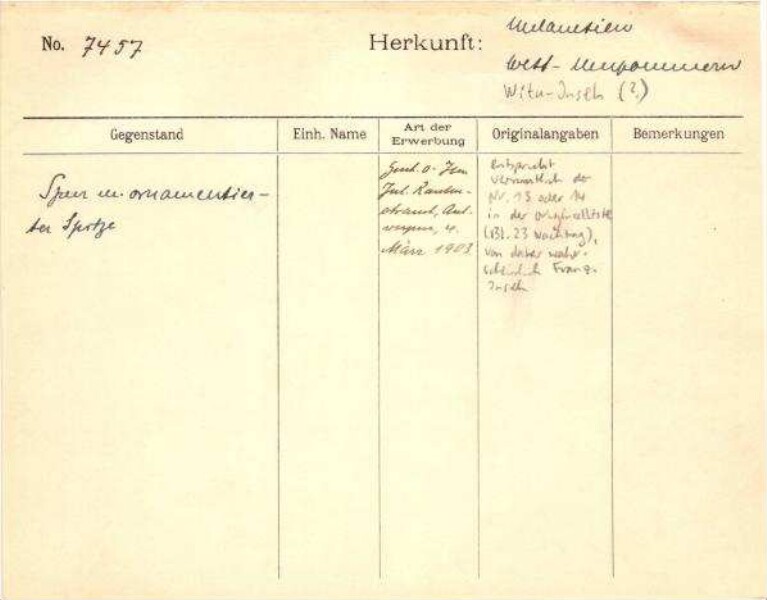 No. 7457
Herkunft:
Melanesien
West-Neupommern
Witu-Inseln (?)
Gegenstand
Einh. Name
Art der
Erwerbung
Originalangaben
Bemerkungen
Speer m. ornamentier-
ter Spitze
März 1903
entspricht
vermutlich der
Nr. 13 oder 14
in der Originalliste
(Bl. 23 Nachtrag),
von daher wahr-
scheinlich Franz.
Inseln